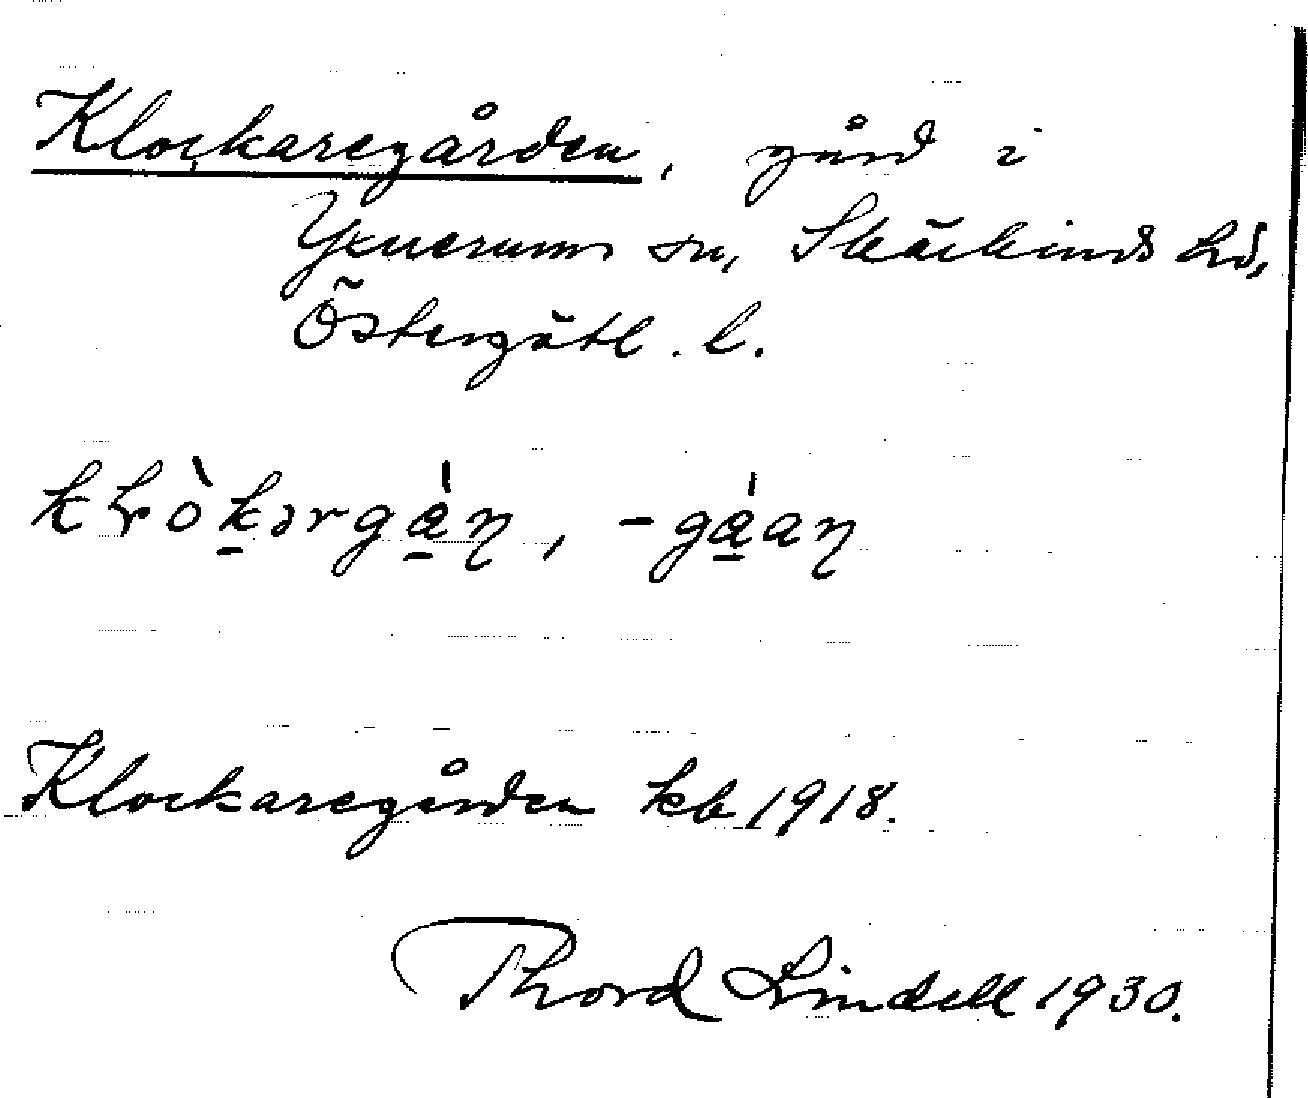 Klockaregården, gård i
Yxnerums sn, Skärkinds hd,
Östergötl. l.
kḷò̀kərgá̱ṇ, -gá̱aṇ
Klockaregården kb 1918.
Thord Lindell 1930.